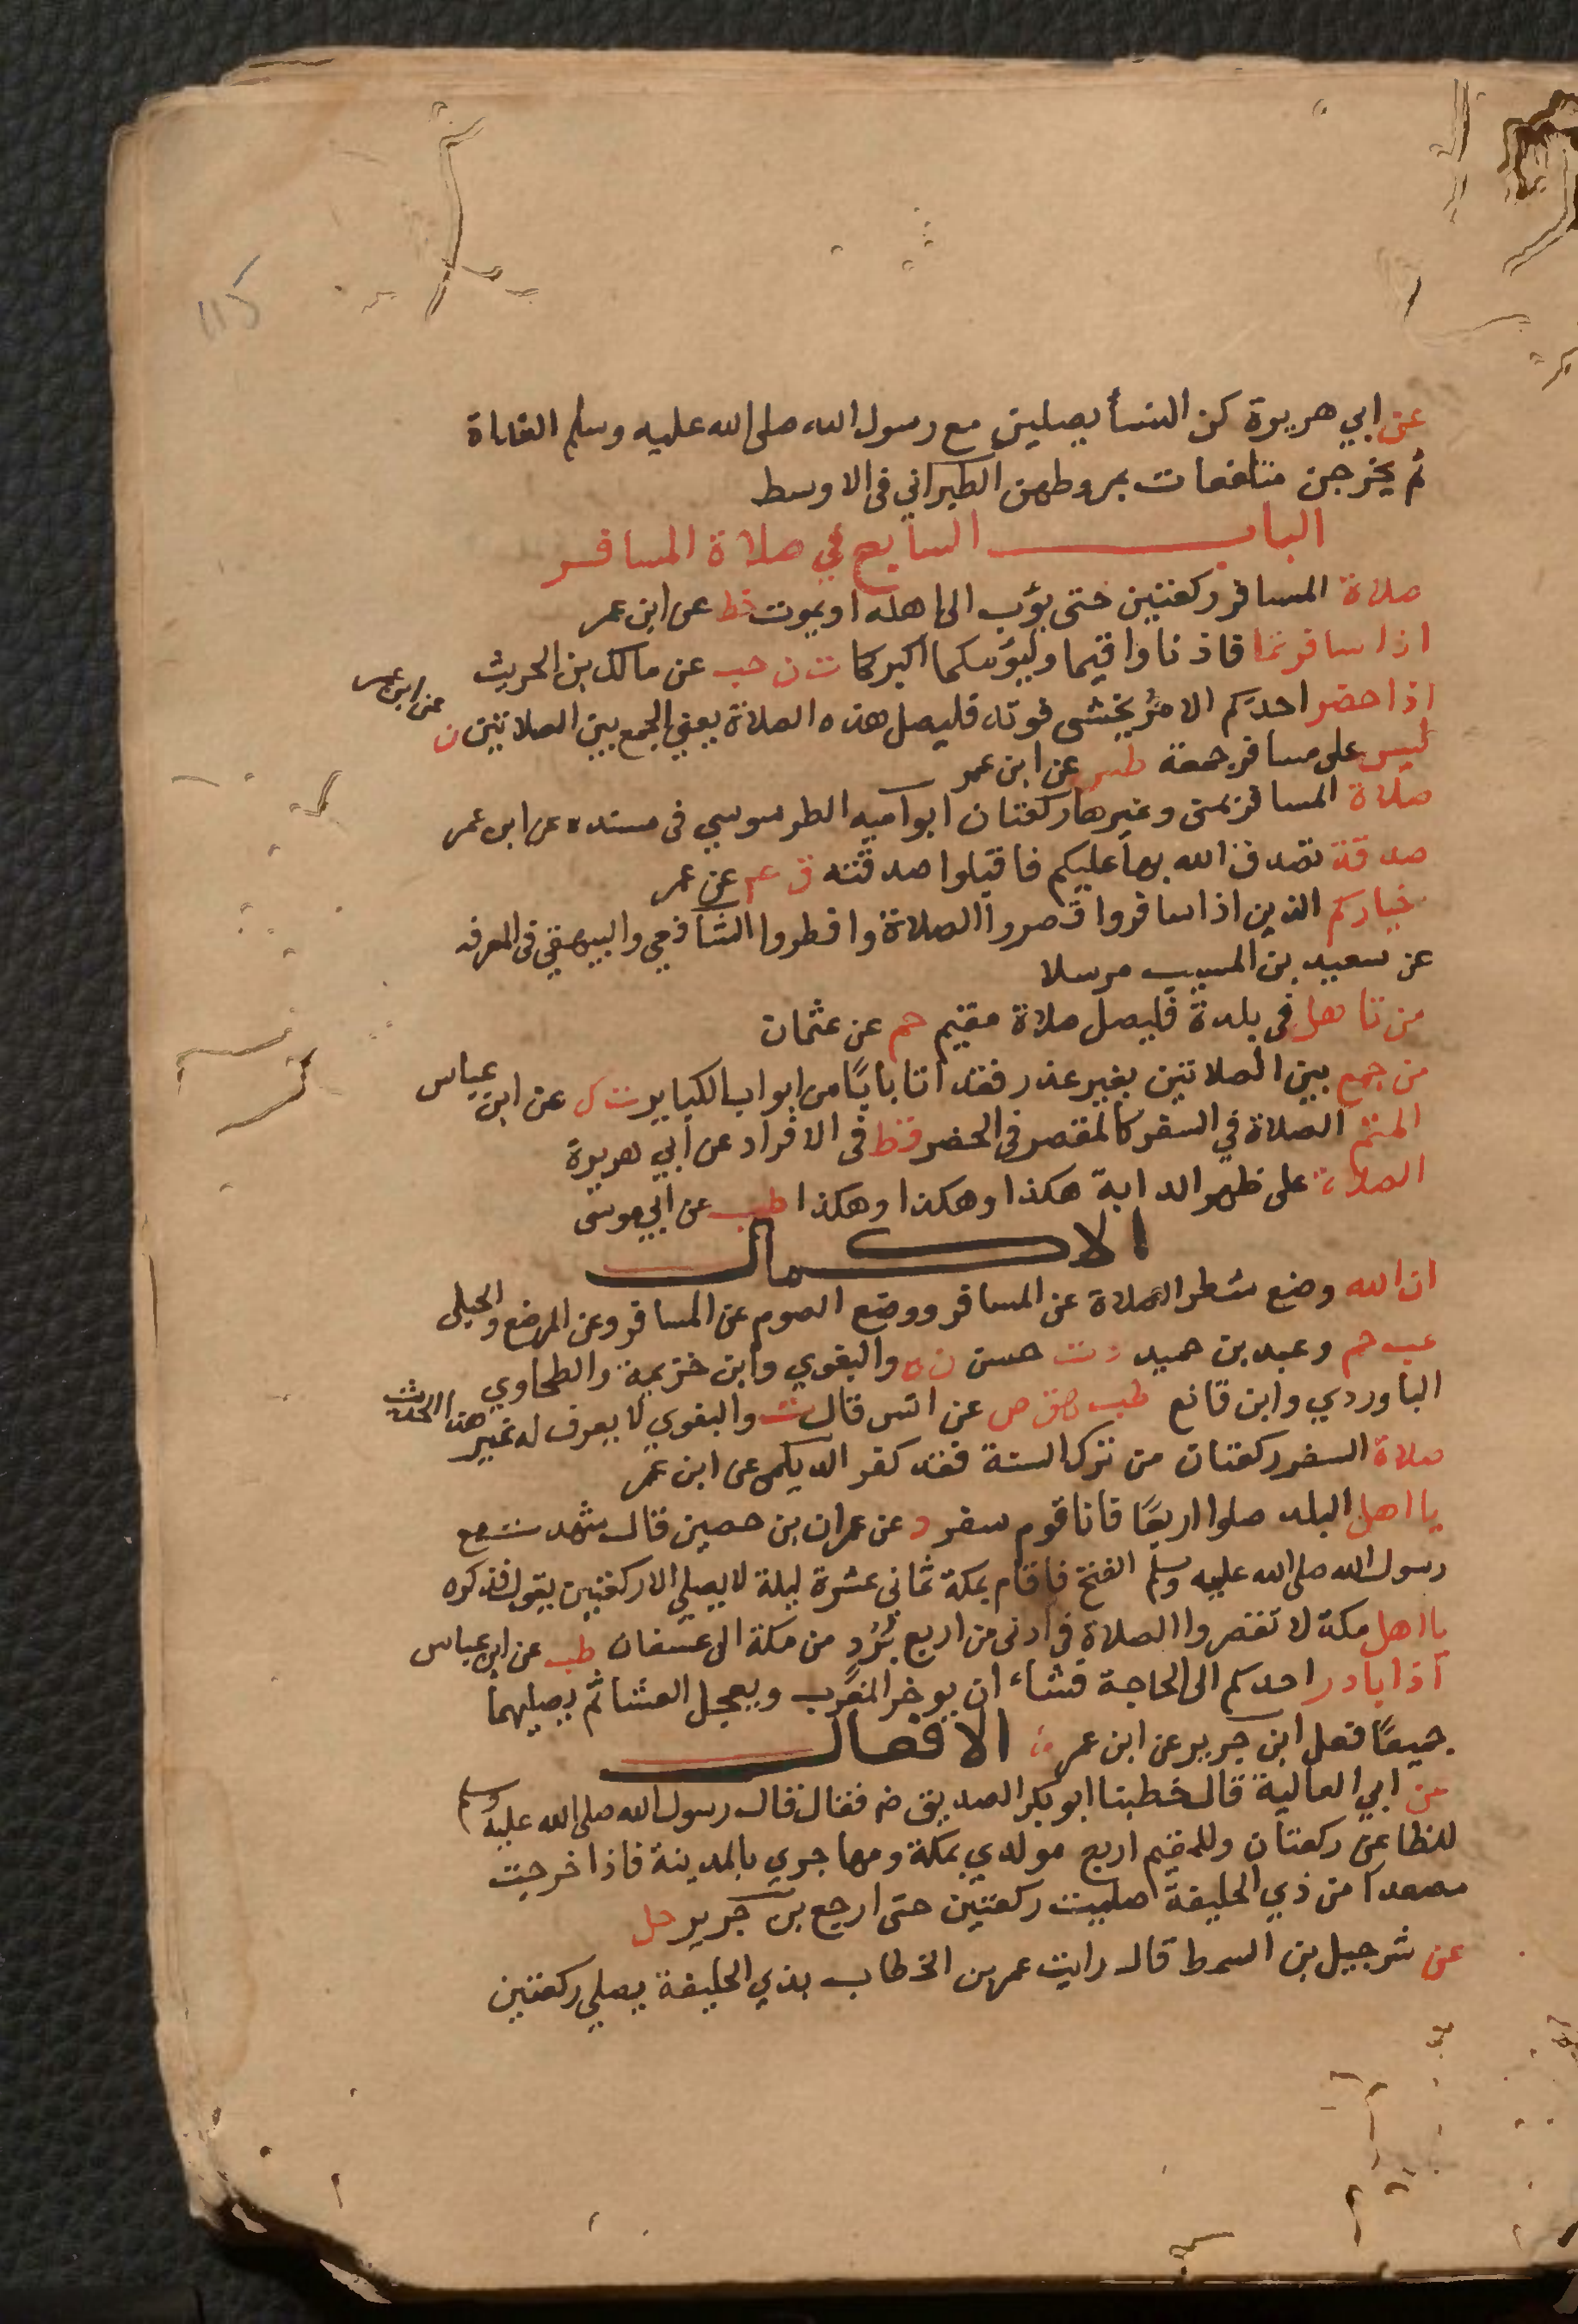 عن ابي هريرة كن النسأ يصلين مع رسول الله صلى الله عليه وسلم الغداة
ثم يخرجن متلفعات بمروطهن الطبراني في الاوسط
الباب السابع في صلاة المسافر
صلاة المسافر ركعتين حتى يؤب الى اهله او يموت خط عن ابن عمر
اذا سافرتما فاذنا واقيما وليؤمكما اكبركما ت ن حب عن مالك بن الحريث
اذا حضر احدكم الامر يخشى فوته فليصل هذه الصلاة يعني الجمع بين الصلاتين ن عن ابن عمر
ليس على مسافر جمعة طس عن ابن عمر
صلاة المسافر بمنى وغيرها ركعتان ابو اميه الطرسوسي في مسنده عن ابن عمر
صدقة تصدق الله بها عليكم فاقبلوا صدقته ق عم عن عمر
خياركم الذين اذا سافروا قصروا الصلاة وافطروا الشافعي والبيهقي في المعرفه
عن سعيد بن المسيب مرسلا
من تاهل في بلدة فليصل صلاة مقيم حم عن عثمان
من جمع بين الصلاتين بغير عذر فقد اتا بابًا من ابواب الكباير ت ك عن ابن عباس
المتم الصلاة في السفر كالمقصر في الحضر قط في الافراد عن ابي هريرة
الصلاة على ظهر الدابة هكذا وهكذا وهكذا طب عن ابي موسى
الاكمال
ان الله وضع شطر الصلاة عن المسافر ووضع الصوم عن المسافر وعن المرضع والحبلى
عب حم وعبد بن حميد د ت حسن ن ه والبغوي وابن خزيمة والطحاوي
الباوردي وابن قانع طب هق ص عن انس قال ت والبغوي لا يعرف له غير هذا الحديث
صلاة السفر ركعتان من ترك السنة فقد كفر الديلمي عن ابن عمر
يا اهل البلد صلوا اربعًا فانا قوم سفر د عن عمران بن حصين قال شهدت مع
رسول الله صلى الله عليه وسلم الفتح فاقام بمكة ثماني عشرة ليلة لا يصلي الا ركعتين يقول فذكره
يا اهل مكة لا تقصروا الصلاة في ادنى من اربع بُرُدٍ من مكة الى عسفان طب عن ابن عباس
اذا بادر احدكم الى الحاجة فشاء ان يوخر المغرب ويعجل العشا ثم يصليهما
جميعًا فعل ابن جرير عن ابن عمر الافعال
عن ابي العالية قال خطبنا ابو بكر الصديق فقال قال رسول الله صلى الله عليه وسلم
للظاعن ركعتان وللمقيم اربع مولدي بمكة ومهاجري بالمدينة فاذا خرجت
مصعدا من ذي الحليفة صليت ركعتين حتى ارجع بن جرير حل
عن شرجبيل بن السمط قال رايت عمر بن الخطاب بذي الحليفة يصلي ركعتين